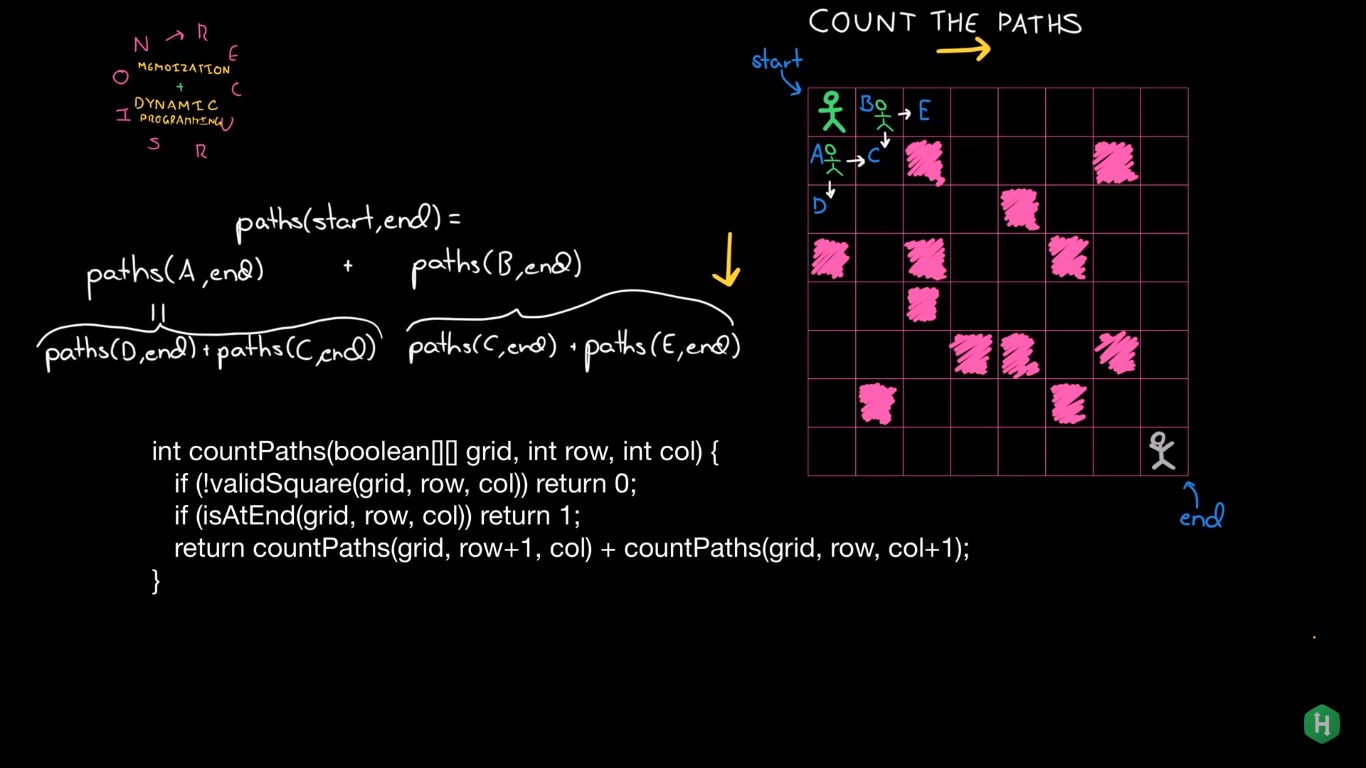 COUNT THE PATHS
RECURSION
MEMOIZATION
+
DYNAMIC
PROGRAMMING
start
B E
A C
D
end
paths(start,end) =
paths(A,end) + paths(B,end)
||
paths(D,end) + paths(C,end) paths(C,end) + paths(E,end)
int countPaths(boolean[][] grid, int row, int col) {
if (!validSquare(grid, row, col)) return 0;
if (isAtEnd(grid, row, col)) return 1;
return countPaths(grid, row+1, col) + countPaths(grid, row, col+1);
}
H